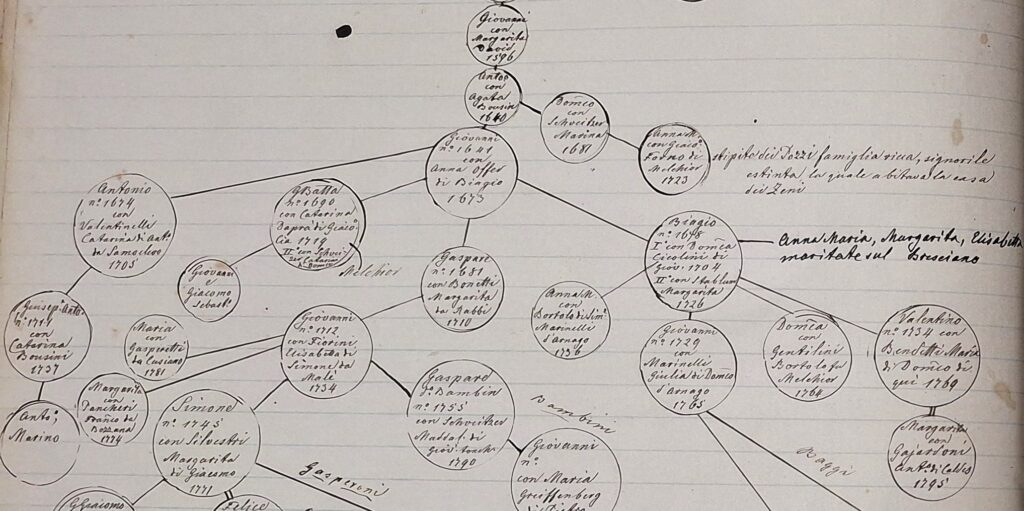 Giovanni
con
Margarita
David
1596
Anto
con
Agata
Bousin
1640
Domco
con
Schveitzer
Marina
1681
Anna M.
con Giaco
Forno di
Melchior
1723
stipite dei Pozzi famiglia ricca, signorile
estinta, la quale abitava la casa
dei Zeni
Giovanni
no 1641
con
Anna Offer
di Biagio
1673
Antonio
no 1674
con
Valentinelli
Catarina di Anto
da Samoclevo
1705
GBatta
no 1690
con Catarina
Daprà di Giaco
Cia 1719
Melchior
Giovanni
e
Giacomo
Sebasto
Gaspare
no 1681
con Bonetti
Margarita
da Rabbi
1710
Biagio
no 1678
Io con Domca
Cicolini di
Giov. 1704
IIo con Stablum
Margarita
1726
Anna Maria, Margarita, Elisabetta
maritate sul Bresciano
Anna M.
con
Bortolo di Sime
Marinelli
d'Arnago
1756
Giusepe Anto
no 1711
con
Catarina
Bousini
1737
Maria
con
Gasperetti
da Cusiano
1781
Giovanni
no 1712
con Fiorini
Elisabetta di
Simone da
Malè
1734
Giovanni
no 1729
con
Marinelli
Giulia di Domco
d'Arnago
1765
Domca
con
Gentilini
Bortolo fu
Melchior
1764
Valentino
no 1734 con
Benedetti Maria
di Domco di
qui 1769
Margarita
con
Dancheri
Franco da
Bozzana
1774
Anto
Marino
Simone
no 1745
con Silvestri
Margarita
di Giacomo
1771
Gaspare
do Bambin
no 1755
con Schveitzer
Maddal. di
Giov.
1790
Bambini
Raggi
Margarita
con
Gajardoni
Anto di Caldes
1795
Gasperoni
Giovanni
no
con Maria
Greiffenberg
di Pietro
GGiacomo
Felice